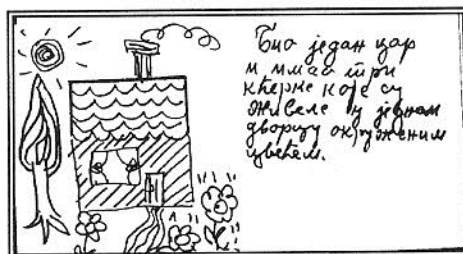 Био један цар
и имао три
кћерке које су
живеле у једном
дворцу окруженим
цвећем.